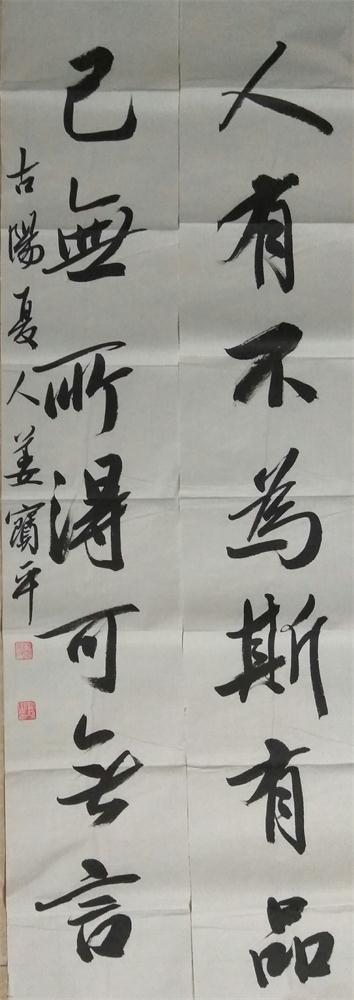 人有不為斯有品
己無所得可無言
古陽夏人姜寶平